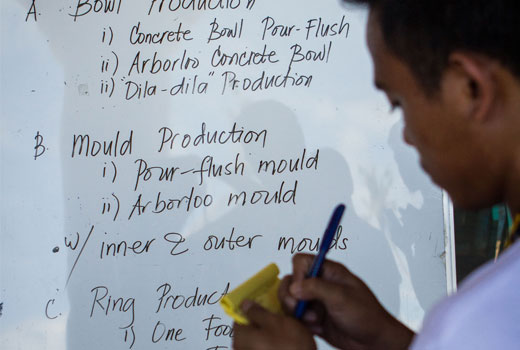 A. Bowl Production
i) Concrete Bowl Pour-Flush
ii) Arborloo Concrete Bowl
ii) "Dila-dila" Production
B. Mould Production
i) Pour-flush mould
ii) Arborloo mould
w/ inner & outer moulds
C. Ring Product
i) One Foo